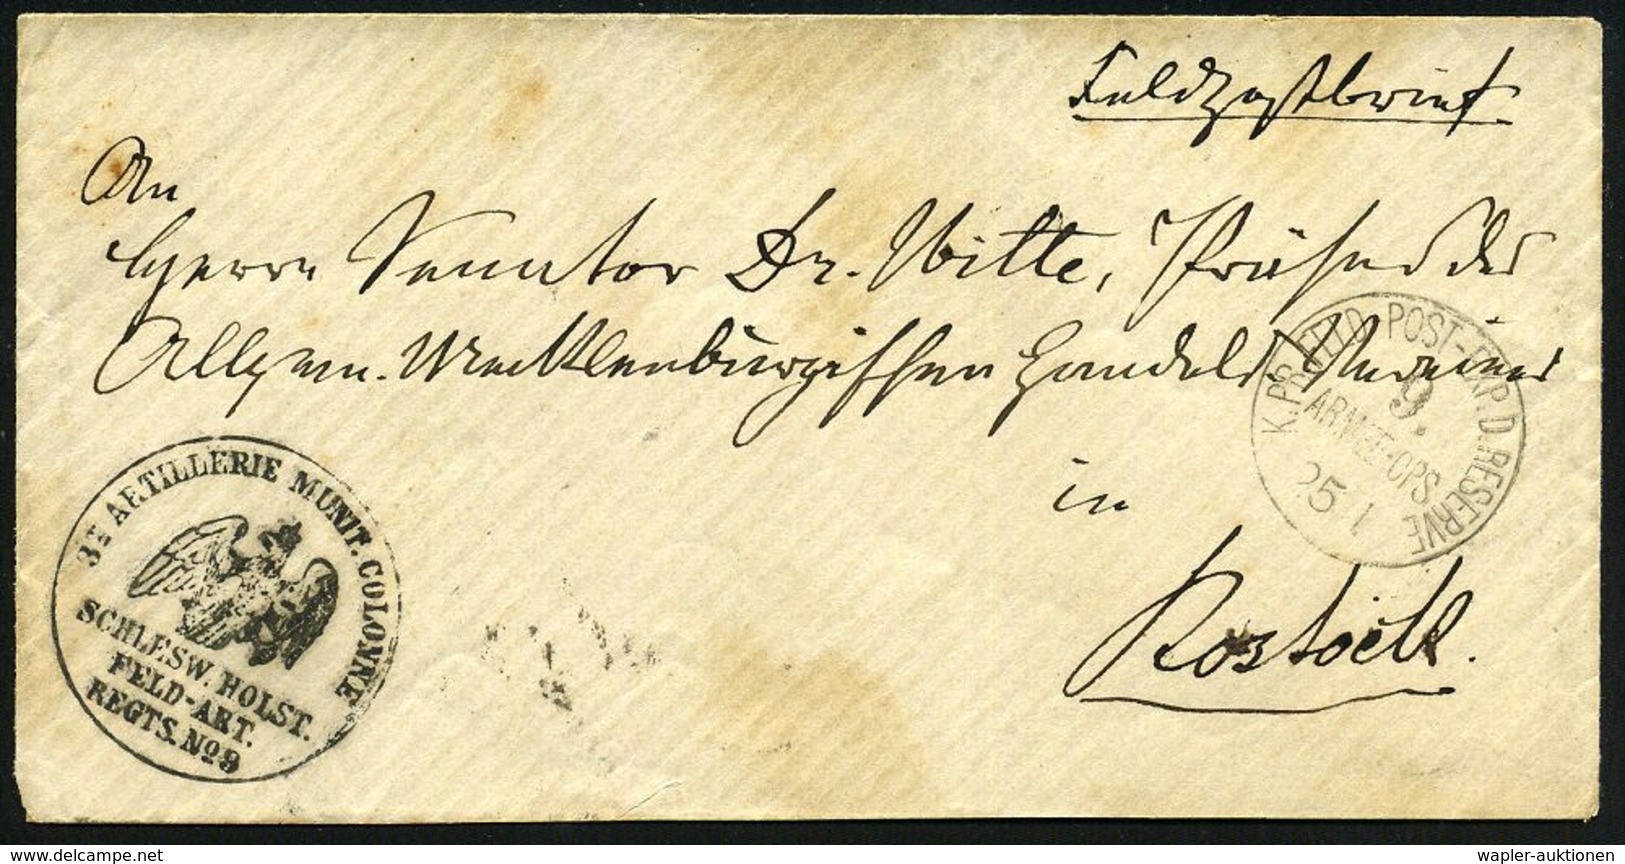 Feldpostbrief
An
Herrn Senator Dr. Witte, Präses des
Allgem. Mecklenburgischen Handels Vereins
in
Rostock.
K. PR. FELD-POST-EXP. D. RESERVE
9.
ARMEE-CPS
25 1
3TE ARTILLERIE MUNIT. COLONNE
SCHLESW. HOLST.
FELD-ART.
REGTS. No 9
delcampe.net
wapler-auktionen